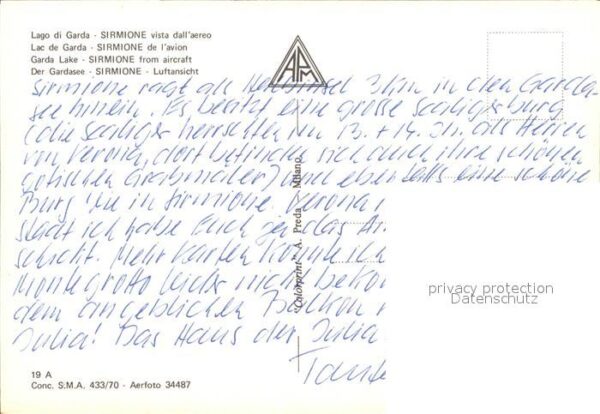 Lago di Garda - SIRMIONE vista dall'aereo
Lac de Garda - SIRMIONE de l'avion
Garda Lake - SIRMIONE from aircraft
Der Gardasee - SIRMIONE - Luftansicht
APM
Sirmione ragt als Halbinsel 3 km in den Garda-
see hinein. Es besitzt eine grosse Scaligerburg
(die Scaliger herrschten im 13. + 14. Jh. als Herren
von Verona, dort befinden sich auch ihre schönen
gotischen Grabmäler) und ebenfalls eine schöne
Burg wie in Sirmione. Verona
stadt ich habe Euch ja das
schickt. Mehr Karten konnte ich
Montegrotto leider nicht
dem angeblichen Balkon
Julia! Das Haus der Julia
"Colorprint" A. Preda - Milano
privacy protection
Datenschutz
19 A
Conc. S.M.A. 433/70 - Aerfoto 34487